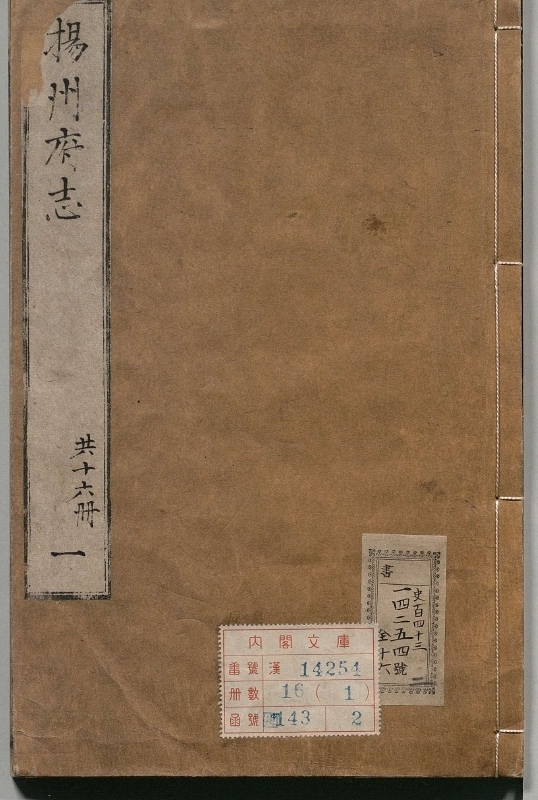 揚州府志
共十六冊
一
書
史百四十三
一四二五四號
全十六
二
內閣文庫
番號 漢 14254
冊數 16 (1)
函號 143 2